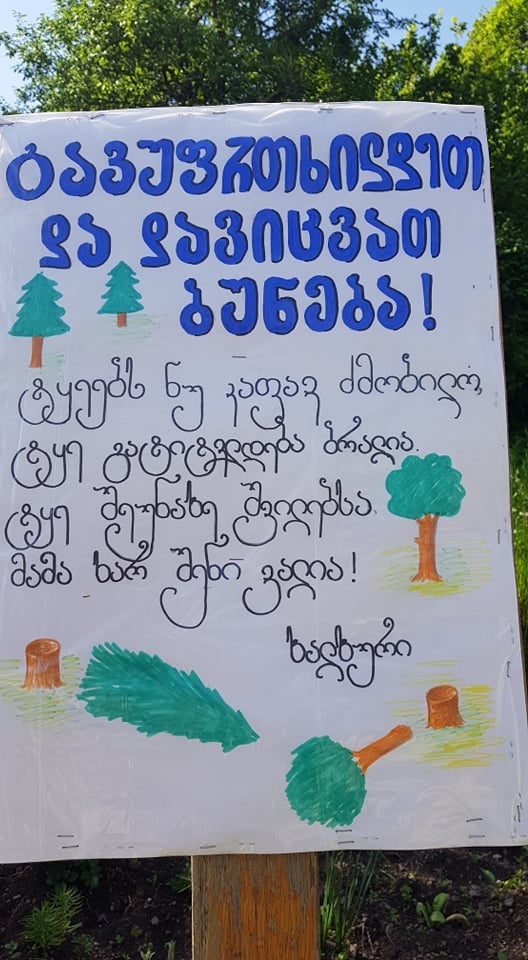 გავუფრთხილდეთ
და დავიცვათ
ბუნება!
ტყეებს ნუ კაფავ ძმობილო,
ტყე გატიტვლდება ბრალია.
ტყე შეუნახე შვილებსა.
მამა ხარ შენი ვალია!
ხალხური